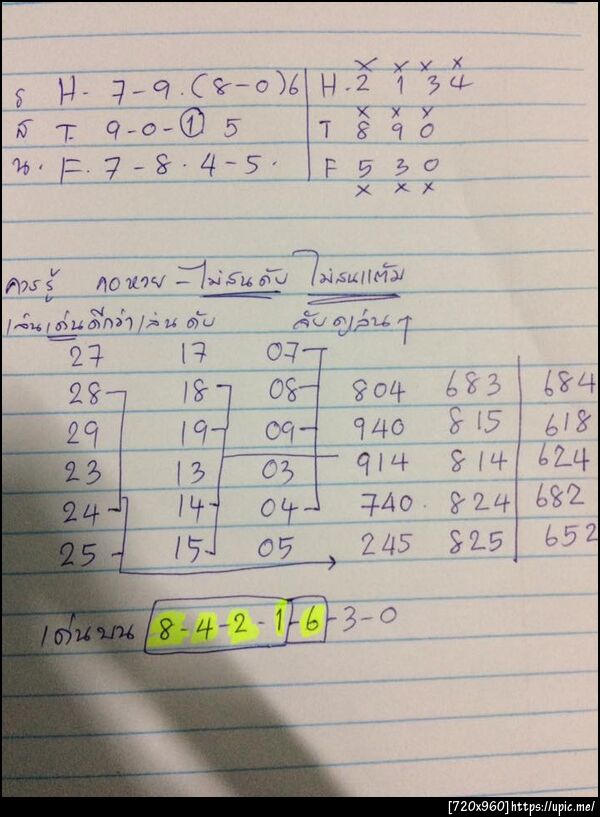 ร H. 7-9. (8-0)6 H. 2 1 3 4
ส T. 9-0-1 5 T 8 9 0
น. F. 7-8.4-5. F 5 3 0
ควรรู้ - ไม่สนดับ ไม่สนแต้ม
เล่นเด่นดีกว่าเล่นดับ
27 17 07
28 18 08 804 683 684
29 19 09 940 815 618
23 13 03 914 814 624
24 14 04 740. 824 682
25 15 05 245 825 652
เด่นบน 8-4-2-1-6-3-0
[720x960]https://upic.me/